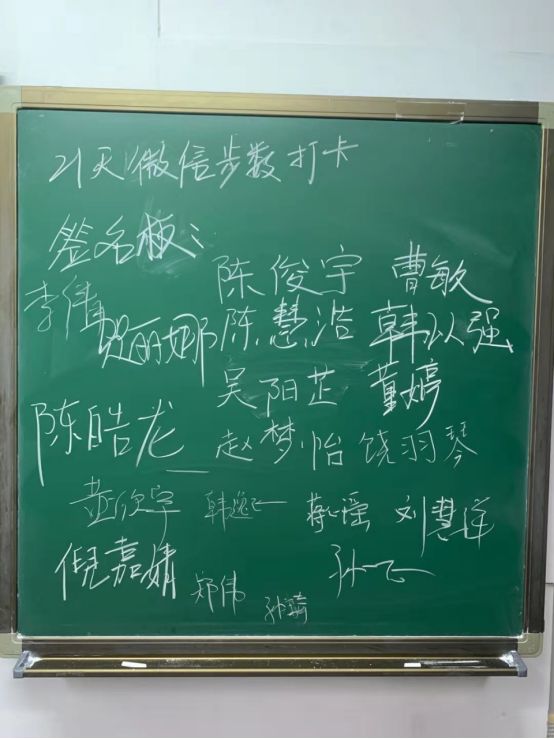 21天微信步数打卡
签名板：
陈俊宇 曹敏
李伟 贺丽娜 陈慧浩 韩以强
吴阳芷 董婷
陈皓龙 赵梦怡 饶羽琴
黄欣宇 韩逸飞 蒋心瑶 刘慧洋
倪嘉婧 郑伟 孙飞